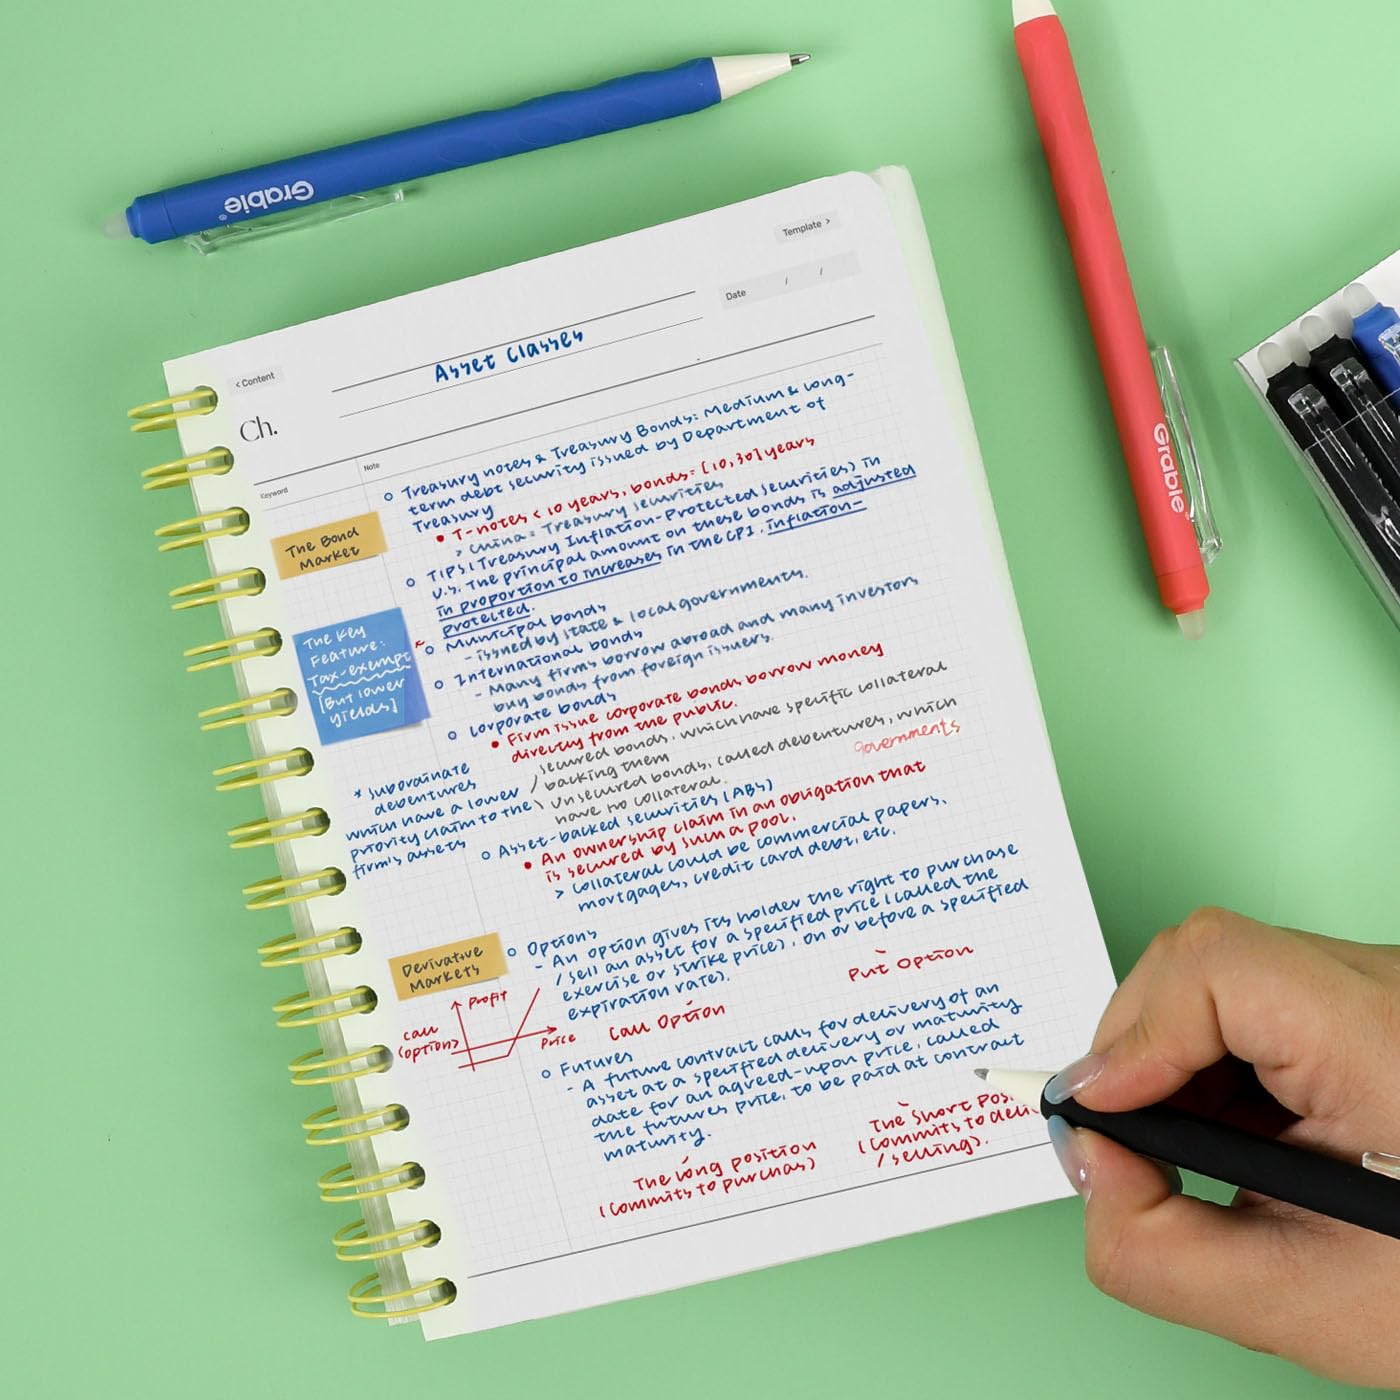 Grabie®
Grabie®
Template >
Date / /
< Content
Asset Classes
Ch.
Keyword
Note
Treasury notes & Treasury Bonds: Medium & long-
term debt security issued by Department of
Treasury
T-notes < 10 years, bonds = [10, 30] years
> China = Treasury securities
TIPS (Treasury Inflation-Protected Securities) in
U.S. The principal amount on these bonds is adjusted
in proportion to increases in the CPI. inflation-
protected.
The Bond
Market
Municipal bonds
- issued by state & local governments.
The Key
Feature:
Tax-exempt
[But lower
yields]
International bonds
- Many firms borrow abroad and many investors
buy bonds from foreign issuers.
Corporate bonds
Firm issue corporate bonds borrow money
directly from the public.
secured bonds, which have specific collateral
/ backing them
\ unsecured bonds, called debentures, which
have no collateral.
governments
* subordinate
debentures
which have a lower
priority claim to the
firm's assets
Asset-backed securities (ABS)
An ownership claim in an obligation that
is secured by such a pool.
> collateral could be commercial papers,
mortgages, credit card debt, etc.
Derivative
Markets
Options
- An option gives its holder the right to purchase
/ sell an asset for a specified price (called the
exercise or strike price), on or before a specified
expiration rate).
Put Option
Call Option
Profit
call
(option)
Price
Futures
- A future contract calls for delivery of an
asset at a specified delivery or maturity
date for an agreed-upon price, called
the futures price, to be paid at contract
maturity.
The long position
(commits to purchas)
The short posi
(commits to deli
/ selling).